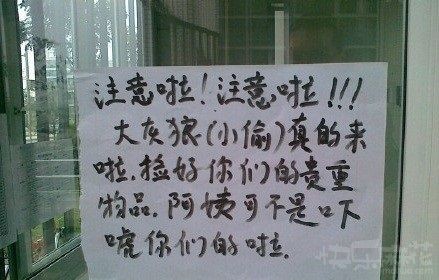 注意啦！注意啦！！！
大灰狼(小偷)真的来
啦.捡好你们的贵重
物品.阿姨可不是吓
唬你们的啦.